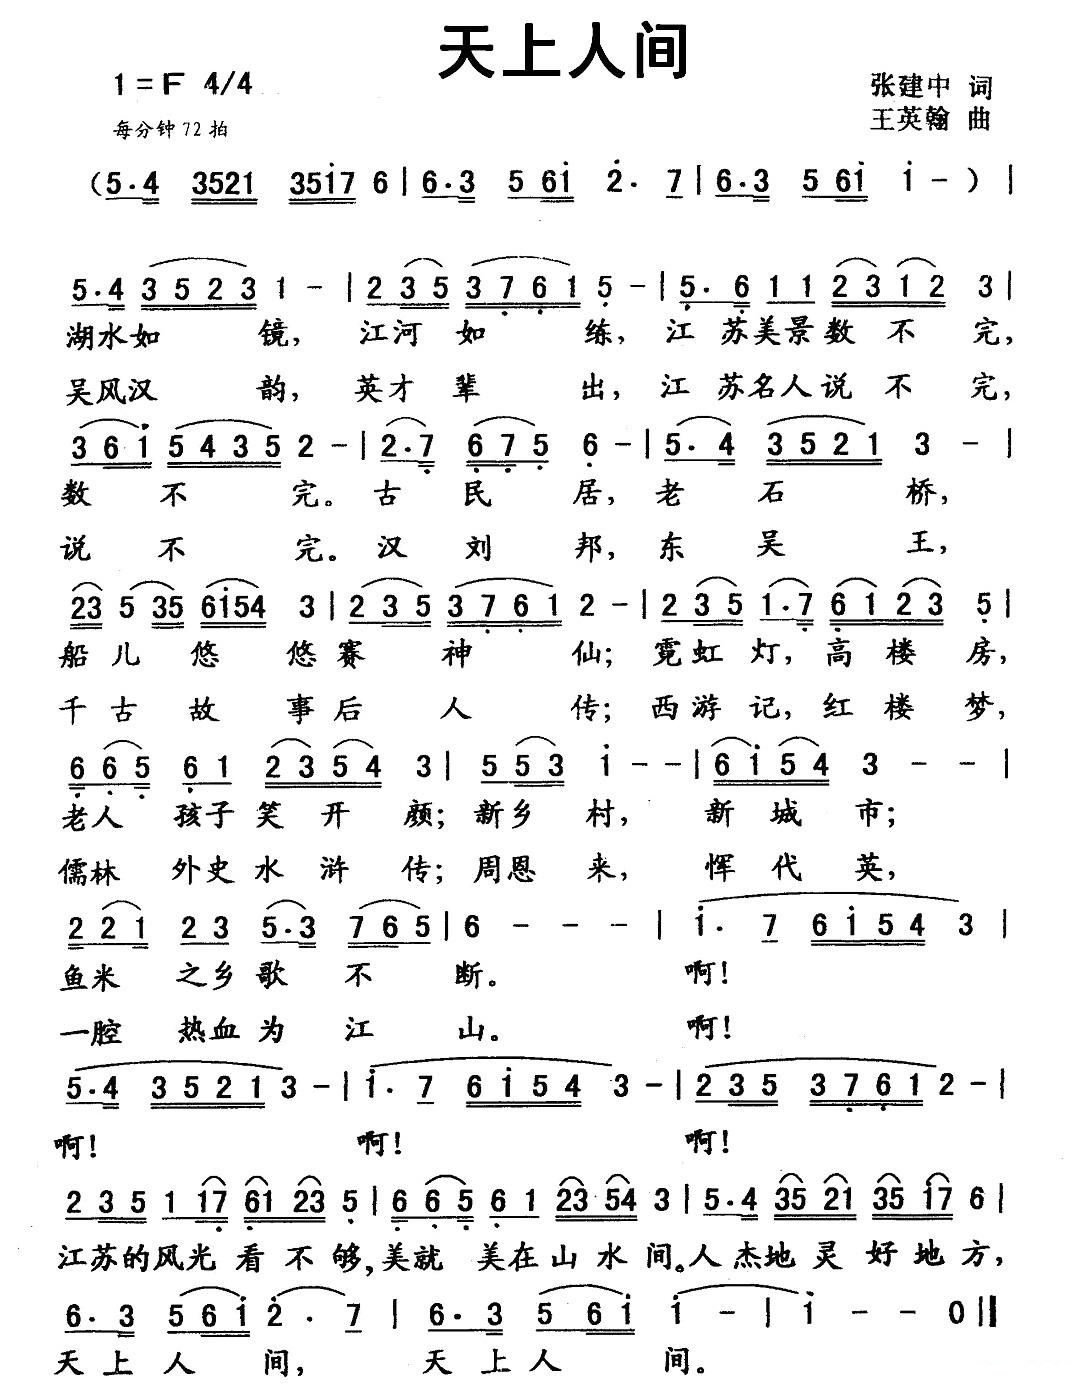 天上人间
1=F 4/4
张建中 词
每分钟72拍
王英翰 曲
(5·4 3521 35i7 6 | 6·3 5 6i 2̇· 7 | 6·3 5 6i i - ) |
5·4 3523 1 - | 2 35 3761 5 - | 5· 6 11 2312 3 |
湖水如 镜, 江河 如 练, 江 苏美景数 不 完,
吴风汉 韵, 英才 辈 出, 江 苏名人说 不 完,
3 6i 5435 2 - | 2·7 675 6 - | 5·4 3521 3 - |
数 不 完。古 民 居, 老 石 桥,
说 不 完。汉 刘 邦, 东 吴 王,
23 5 35 6i54 3 | 2 35 3761 2 - | 2 35 1·7 6123 5 |
船儿 悠 悠赛 神 仙; 霓虹 灯, 高 楼 房,
千古 故 事后 人 传; 西游 记, 红 楼 梦,
6 65 61 2354 3 | 5 53 i - - | 6i54 3 - - |
老人 孩子 笑 开 颜; 新乡 村, 新 城 市;
儒林 外史 水 浒 传; 周恩 来, 恽 代 英,
2 21 23 5·3 765 | 6 - - - | i· 7 6i54 3 |
鱼米 之乡 歌 不 断。 啊!
一腔 热血 为 江 山。 啊!
5·4 3521 3 - | i· 7 6i54 3 - | 2 35 3761 2 - |
啊! 啊! 啊!
2 35 1 17 61 23 5 | 6 65 6 1 23 54 3 | 5·4 35 21 35 17 6 |
江苏的风光 看 不 够, 美就 美在山 水 间。人 杰地 灵 好 地 方,
6·3 5 6i 2̇· 7 | 6·3 5 6i i - | i - - 0 ||
天 上 人 间, 天 上 人 间。